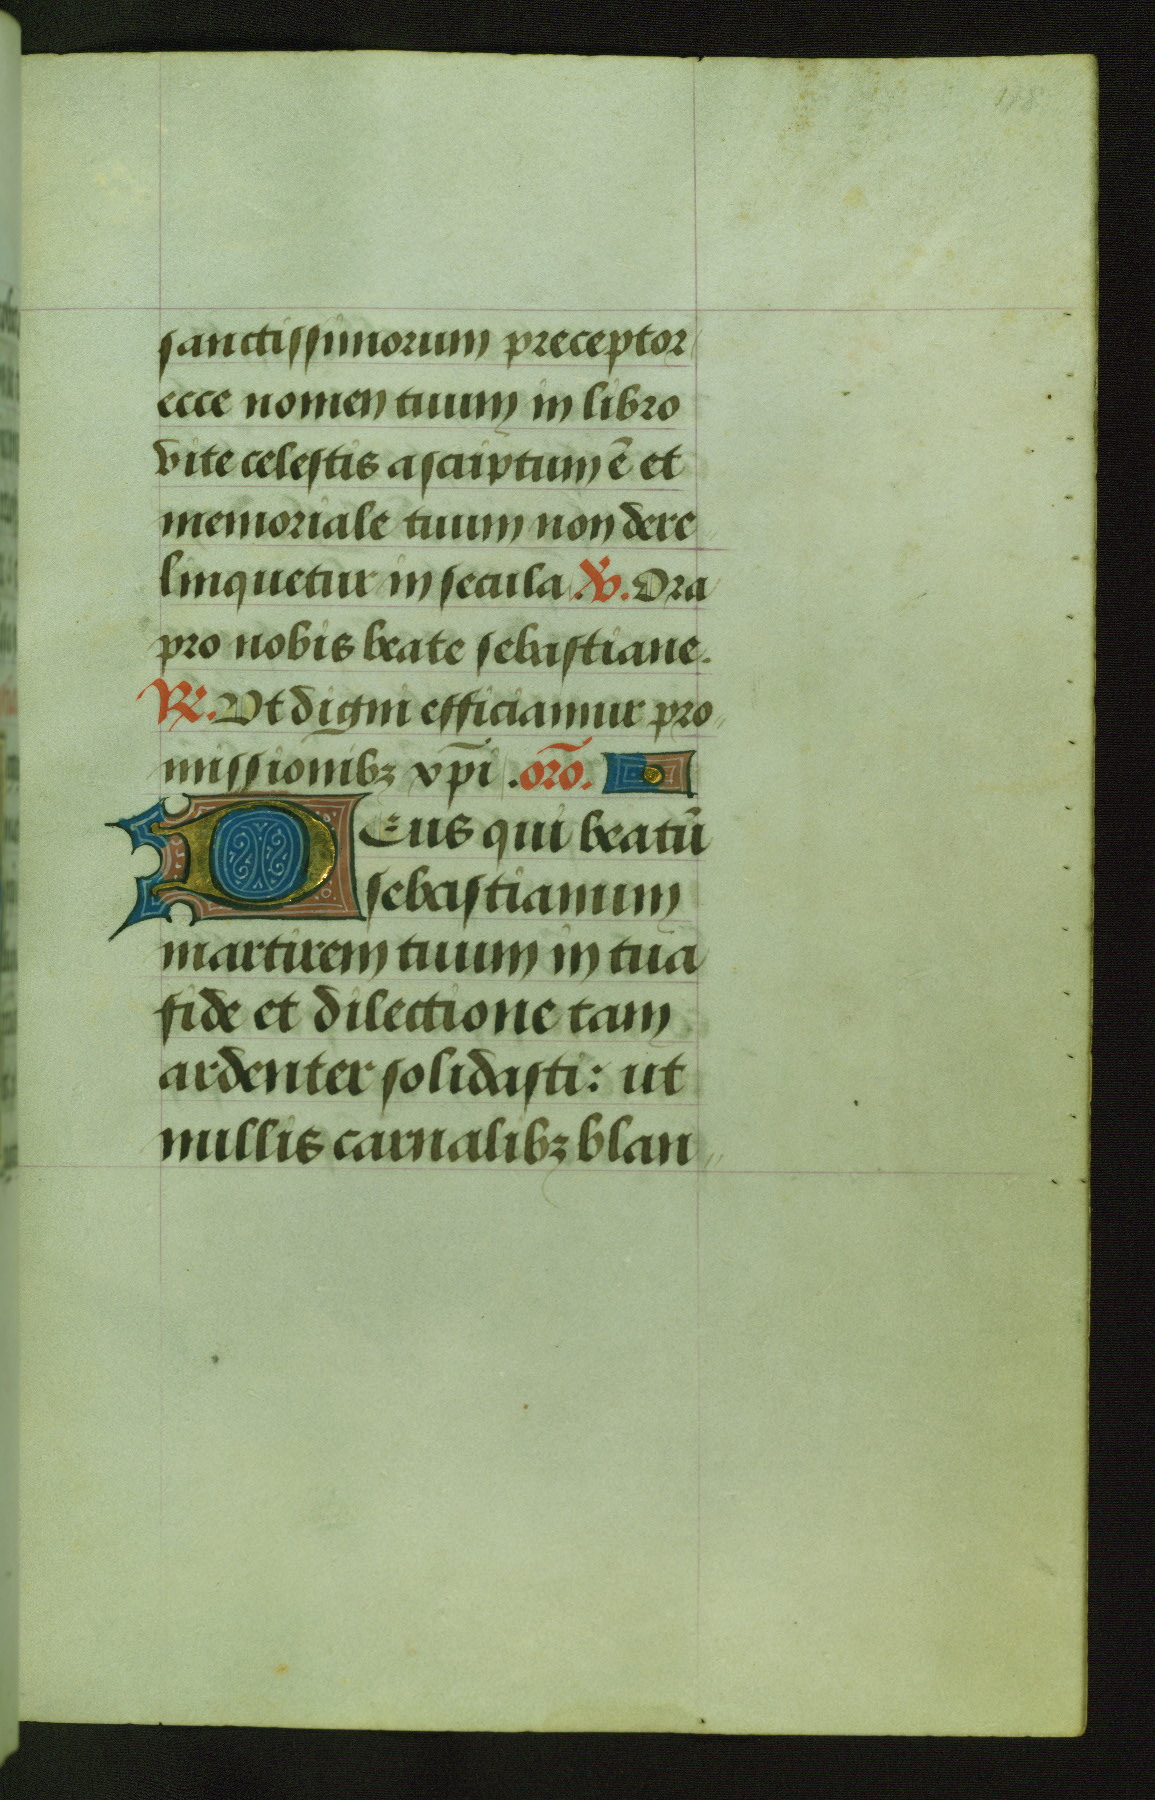 sanctissimorum preceptor
ecce nomen tuum in libro
vite celestis ascriptum ē et
memoriale tuum non dere
linquetur in secula .V̄. Ora
pro nobis beate sebastiane.
R̄. Ut digni efficiamur pro
missionibꝫ xp̄i .orō.
Deus qui beatū
sebastianum
martirem tuum in tua
fide et dilectione tam
ardenter solidasti: ut
nullis carnalibꝫ blan